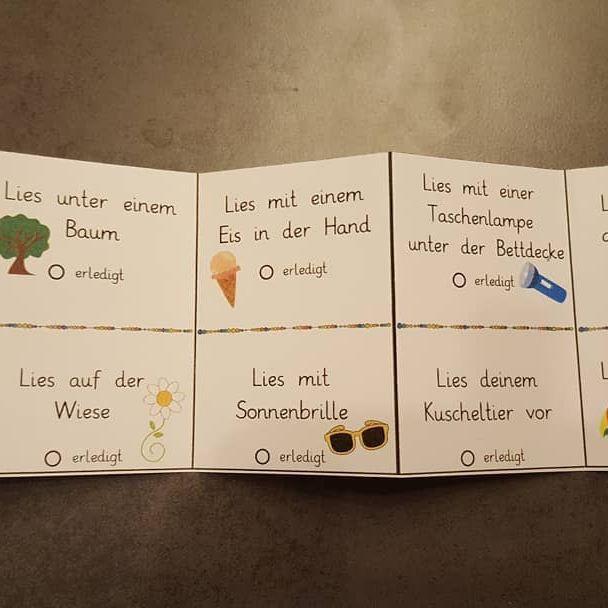 Lies unter einem
Baum
erledigt
Lies mit einem
Eis in der Hand
erledigt
Lies mit einer
Taschenlampe
unter der Bettdecke
erledigt
Lies auf der
Wiese
erledigt
Lies mit
Sonnenbrille
erledigt
Lies deinem
Kuscheltier vor
erledigt